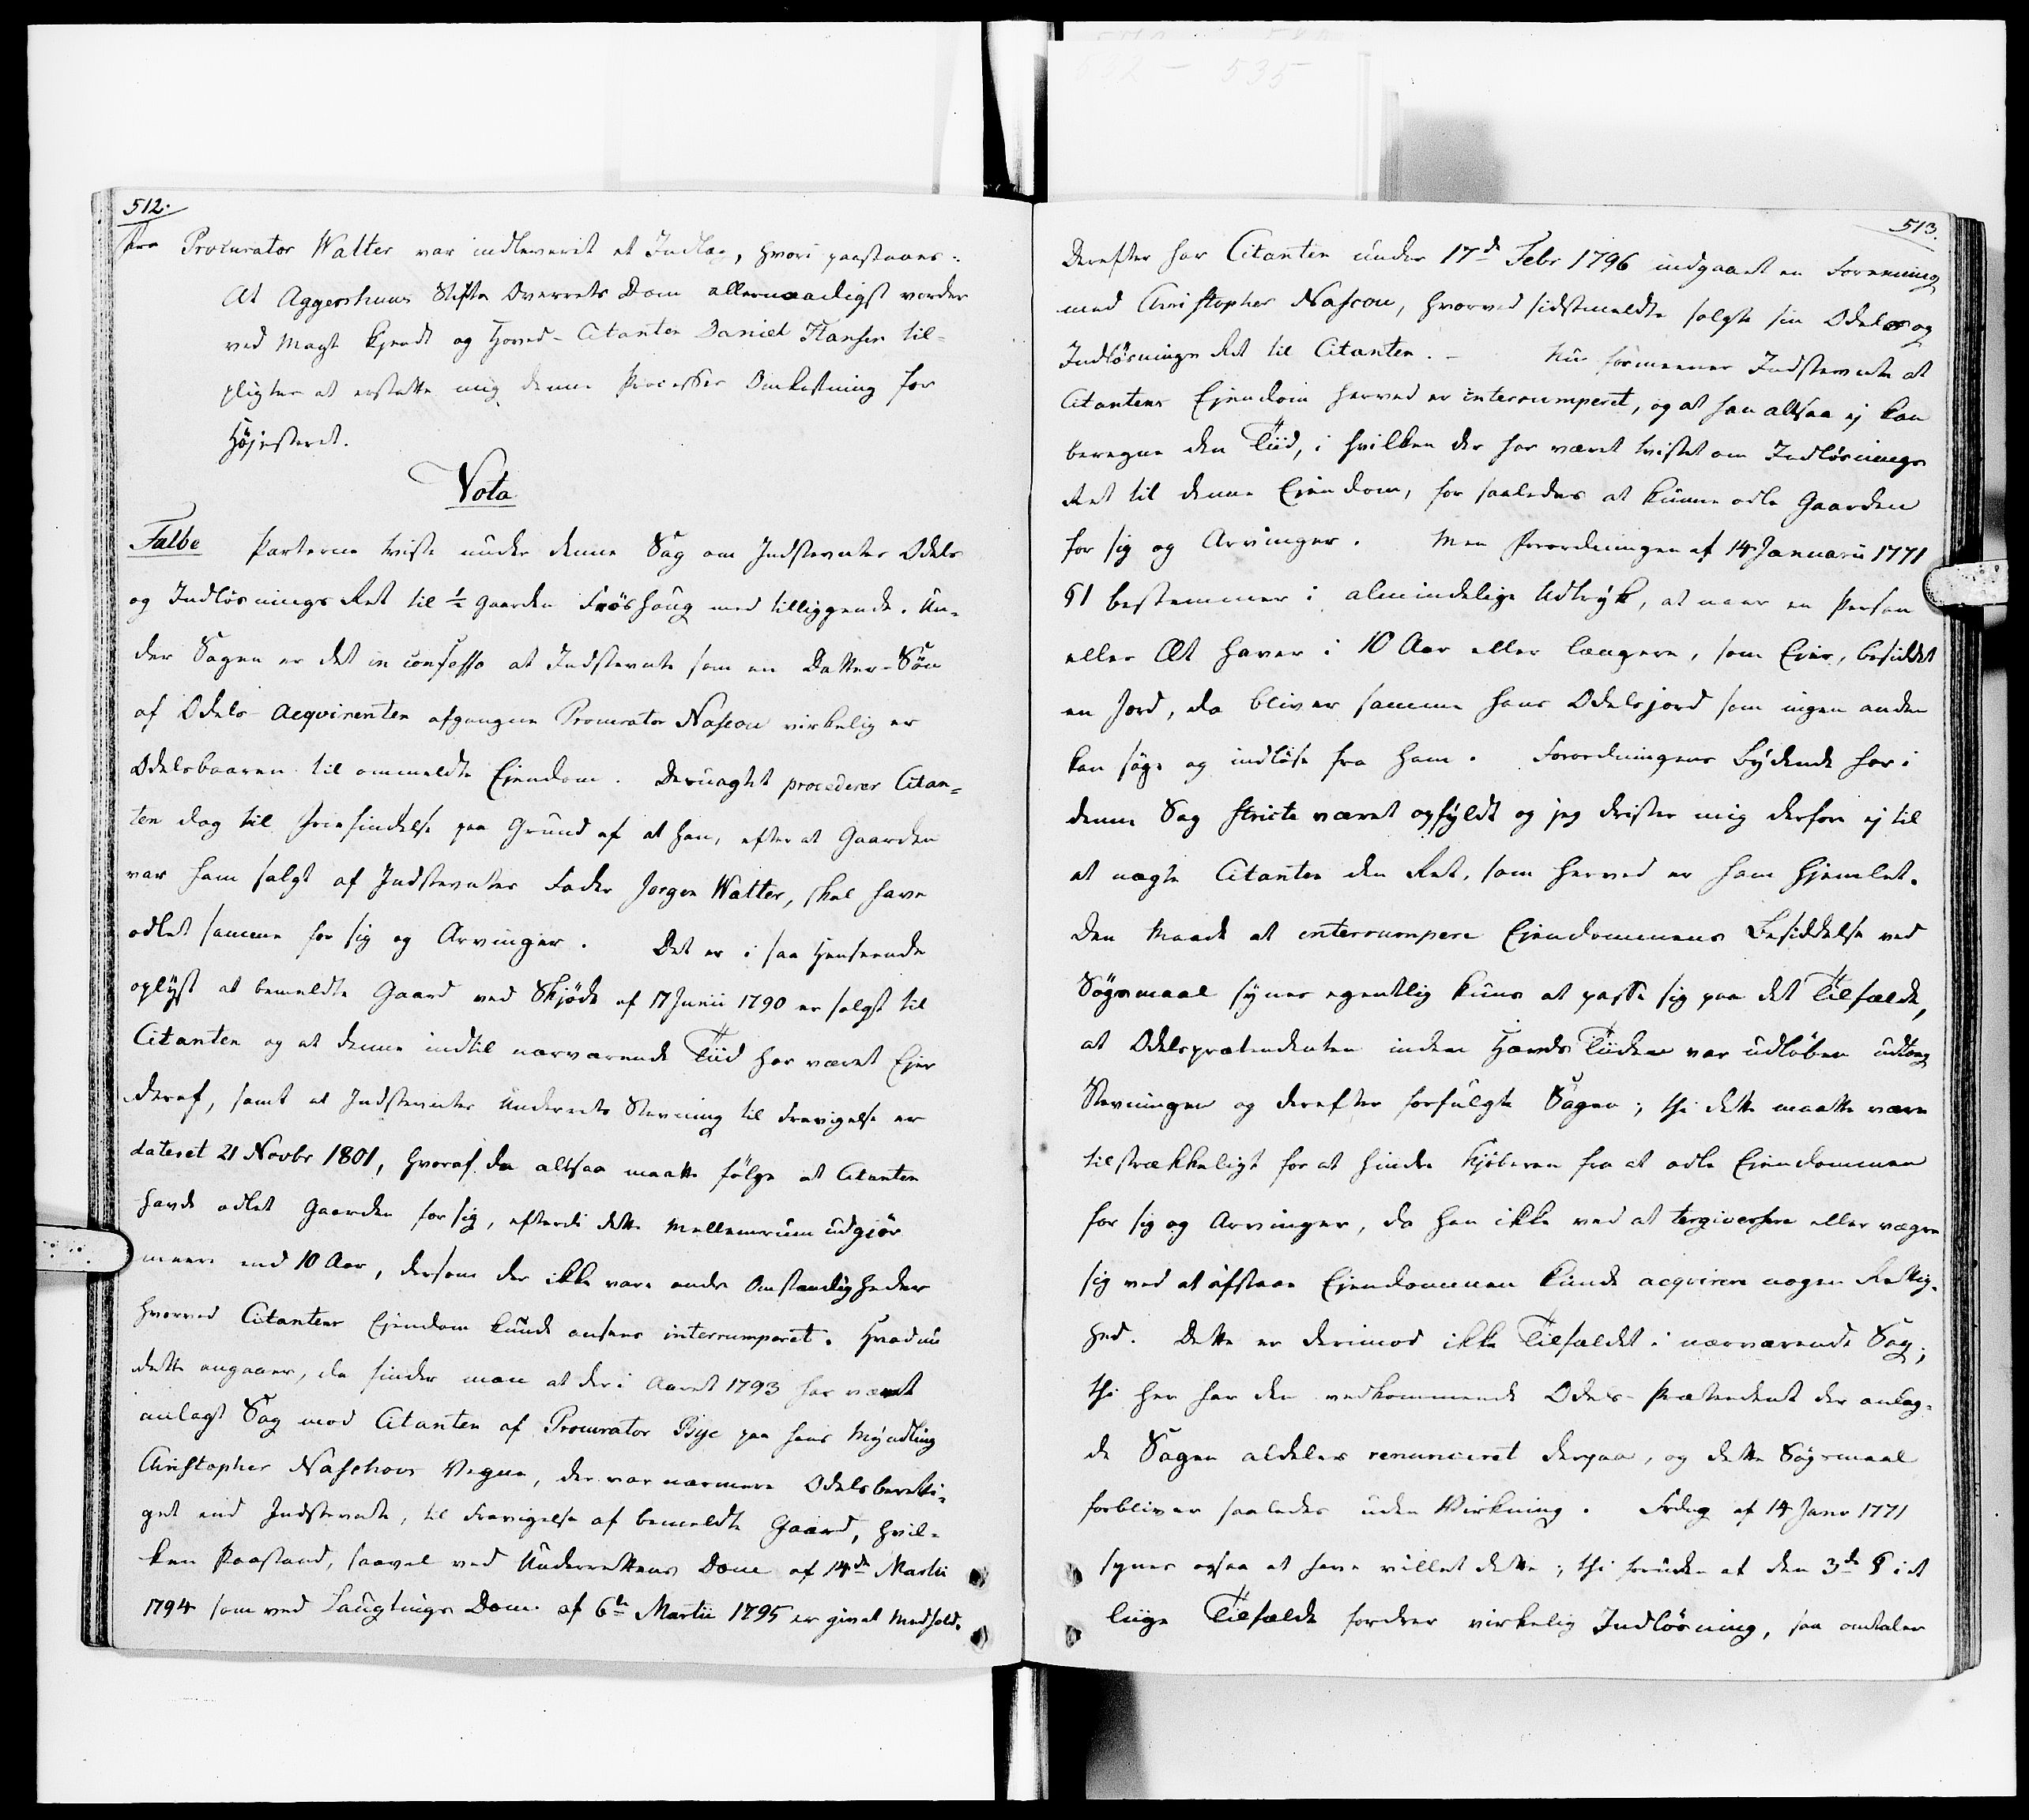 512.
Fra Procurator Walter var indleveret et Indlæg, hvori paastaaes:
At Aggershuus Stifts Overrets Dom allernaadigst vorder
ved Magt kjendt og Hoved-Citanten Daniel Hansen til-
pligtes at erstatte mig denne Processes Omkostning for
Højesteret.
Vota
Falbe Parterne tviste under denne Sag om Indstevntes Odels
og Indløsnings Ret til ½ Gaarden Frøshoug med tilliggende. Un-
der Sagen er det in confesso at Indstevnte som en Datter-Søn
af Odels-Acqvirenten afgangne Procurator Nascou virkelig er
Odelsbaaren til ommeldte Ejendom. Desuagtet procederer Citan-
ten dog til Friefindelse paa Grund af at han, efter at Gaarden
var ham solgt af Indstevntes Fader Jørgen Walter, skal have
odlet samme for sig og Arvinger. Det er i saa Henseende
oplyst at bemeldte Gaard ved Skjøde af 17 Junii 1790 er solgt til
Citanten og at denne indtil nærværende Tiid har været Ejer
deraf, samt at Indstevntes Underrets Stevning til Fravigelse er
dateret 21 Novbr 1801, hvoraf da altsaa maatte følge at Citanten
havde odlet Gaarden for sig, efterdi dette Mellemrum udgiør
meere end 10 Aar, dersom der ikke vare andre Omstændigheder
hvorved Citantens Ejendom kunde ansees interrumperet. Hvad nu
dette angaaer, da finder man at der i Aaret 1793 har været
anlagt Sag mod Citanten af Procurator Bye paa hans Myndling
Christopher Naschous Vegne, der var nærmere Odelsberetti-
get end Indstevnte, til Fravigelse af bemeldte Gaard, hvil-
ken Paastand, saavel ved Underrettens Dom af 14de Martii
1794 som ved Laugtings Dom af 6te Martii 1795 er givet Medhold.
513.
Derefter har Citanten under 17de Febr 1796 indgaaet en Forening
med Christopher Nascou, hvorved sidstmeldte solgte sin Odels og
Indløsnings Ret til Citanten. - Nu formeener Indstevnte at
Citantens Ejendom herved er interrumperet, og at han altsaa ej kan
beregne den Tiid, i hvilken der har været tvistet om Indløsnings
Ret til denne Ejendom, for saaledes at kunne odle Gaarden
for sig og Arvinger. Men Forordningen af 14 Januarii 1771
§1 bestemmer i almindelige Udtryk, at naar en Person
eller Æt haver i 10 Aar eller længere, som Ejer, besiddet
en Jord, da bliver samme hans Odelsjord som ingen anden
kan søge og indløse fra ham. Forordningens Bydende har i
denne Sag stricte været opfyldt og jeg drister mig derfore ej til
at nægte Citanten den Ret, som herved er ham hjemlet.
Den Maade at interrumpere Ejendommens Besiddelse ved
Søgsmaal synes egentlig kuns at passe sig paa det Tilfælde,
at Odelsprætendenten inden Hævds Tiiden var udløben udtog
Stevningen og derefter forfulgte Sagen; thi dette maatte være
tilstrækkeligt for at hindre Kjøberen fra at odle Ejendommen
for sig og Arvinger, da han ikke ved at tergiversere eller vægre
sig ved at afstaae Ejendommen kunde acqvirere nogen Rettig-
hed. Dette er derimod ikke Tilfældet i nærværende Sag;
thi her har den vedkommende Odels-Prætendent der anlag-
de Sagen aldeles renunceret derpaa, og dette Søgsmaal
forbliver saaledes uden Virkning. Frdng af 14 Janr 1771
synes ogsaa at have villet dette; thi foruden at den 3de § i et
liige Tilfælde fordrer virkelig Indløsning, saa omtaler